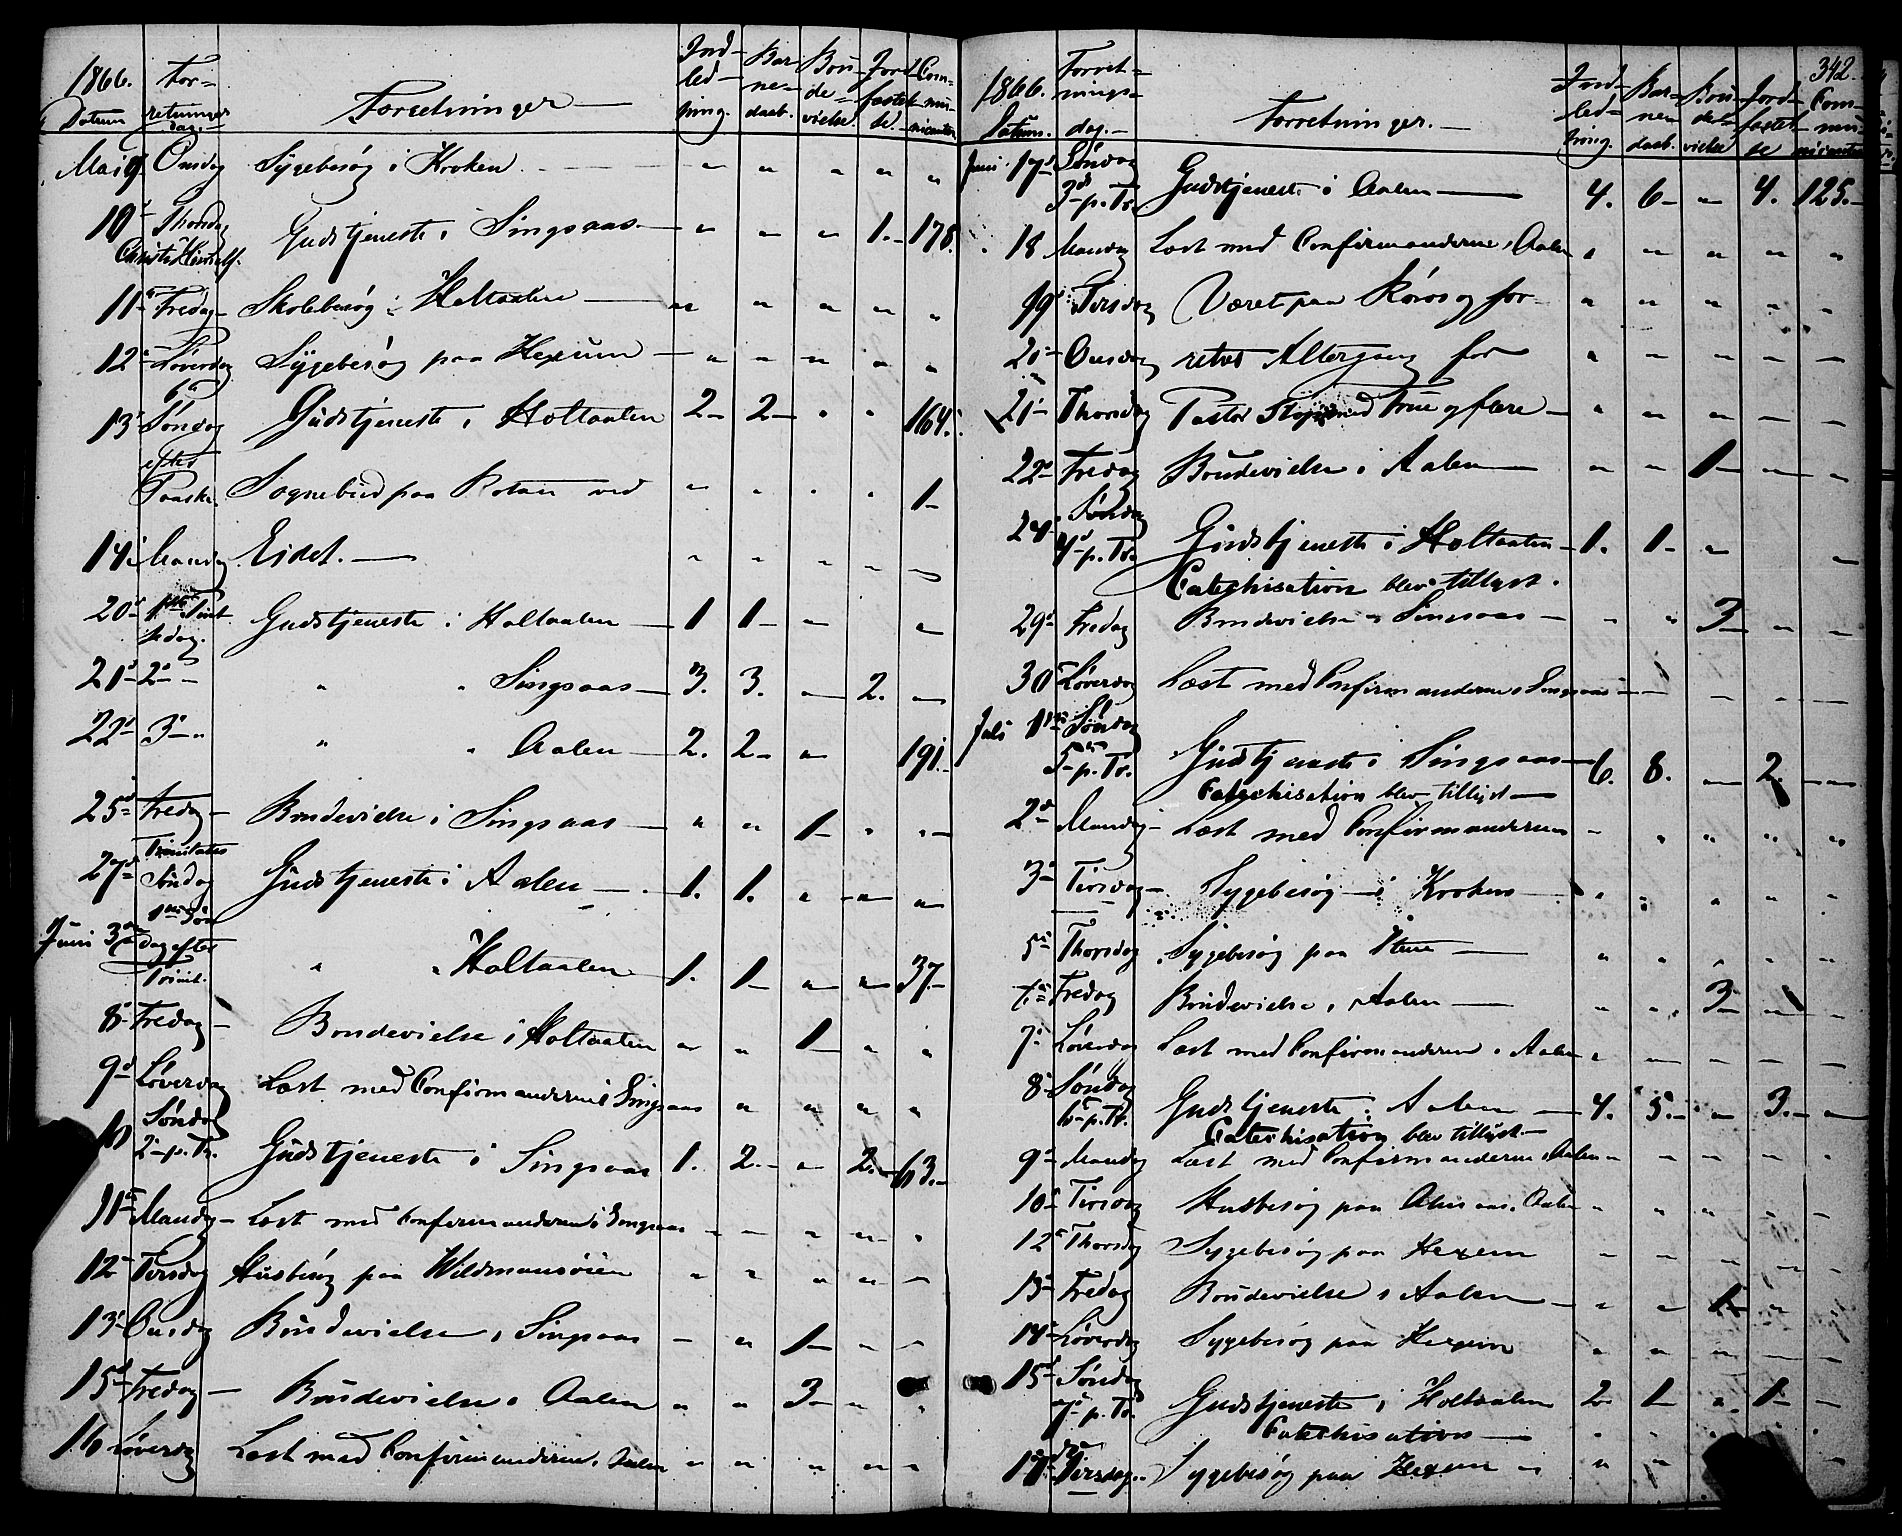 1866. For- Ind- Bar- Bru- Jord- Com-
Datum retninger dag.- Forretninger led- ning. ne- daab. de- vielse. fæstel- se. mu- nicanter
Mai 9 Onsdag Sygebesøg i Kroken - " " " " "
10 Thorsdag Christi Himmelf. Gudstjeneste i Singsaas - " " " 1. 178.
11 Fredag Skolebesøg i Holtaalen - " " " " "
12 Løverdag Sygebesøg paa Hexum - " " " " "
13 Søndag Gudstjeneste i Holtaalen 2 2 " " 164.
efter
Paaske. Sognebud paa ved " " " " 1
14 Mandag Eidet. - " " " " "
20 1ste Pint-
sedag. Gudstjeneste i Holtaalen 1 1 " "
21 2 " " Singsaas 3. 3. - 2. -
22 3 " " " Aalen 2. 2 " 191.
25 Fredag Brudevielse i Singsaas " " 1 " "
27 Trinitatis
Søndag Gudstjeneste i Aalen - 1. 1. " " "
Juni 3 1ste Søn-
dag efter
Trinit. " " Holtaalen 1. 1 " " 37
8 Fredag - Brudevielse i Holtaalen " " 1 " "
9 Løverdag Læst med Confirmanderne i Singsaas " " " "
10 Søndag
2 p. Tr. Gudstjeneste i Singsaas 1. 2. " 2. 63.
11 Mandag - Læst med Confirmanderne i Singsaas - - " " "
12 Tirsdag Husbesøg paa Wildmansøien " " " " -
13 Onsdag Brudevielse i Singsaas - " 1 - -
15 Fredag - Brudevielse i Aalen " " 3 - "
16 Løverdag Læst med Confirmanderne i Aalen " " " " "
342.
1866. Forret- Ind- Bar- Bru- Jord- Com-
Datum. nings- dag.- Forretninger. - led- ning. ne- daab. de- vielse fæstel- se mu- nicanter
Juni 17 Søndag
3 p. Tr. Gudstjeneste i Aalen - 4. 6 " 4. 125.
18 Mandag Læst med Confirmanderne i Aalen " " " " "
19 Tirsdag Været paa Røros og for- " " " " "
20 Onsdag rettet Altergang for " - " - -
21 Thorsdag Pastor med Frue og flere - " - " - -
22 Fredag Brudevielse i Aalen - " " 1 - -
24 Søndag
4 p. Tr. Gudstjeneste i Holtaalen - 1. 1 " -
Catechisation blev tillyst.
29 Fredag Brudevielse i Singsaas - " " 3 - -
30 Løverdag Læst med Confirmanderne i Singsaas - - - - -
Juli 1 Søndag
5 p. Tr. Gudstjeneste i Singsaas 6. 8. - 2. -
Catechisation blev tillyst -
2 Mandag - Læst med Confirmanderne - " " " "
3 Tirsdag - Sygebesøg i Kroken - " " " " "
5 Thorsdag Sygebesøg paa - " " " " "
6 Fredag Brudevielse i Aalen - " " 3 - -
7 Løverdag Læst med Confirmanderne i Aalen " - - - -
8 Søndag
6 p. Tr. Gudstjeneste i Aalen - 4. 5. - 3. -
Catechisation blev tillyst. -
9 Mandag Læst med Confirmanderne i Aalen - - - - "
10 Tirsdag Husbesøg paa i Aalen " " " - -
12 Thorsdag Sygebesøg paa Hexem - - - - -
13 Fredag Brudevielse i Aalen - " - 1 " -
14 Løverdag Sygebesøg paa Hexem " " " - -
15 Søndag
7 p. Tr. Gudstjeneste i Holtaalen 2 1 " 1 -
Catechisation - " " " "
17 Tirsdag.. Sygebesøg paa Hexem " " "